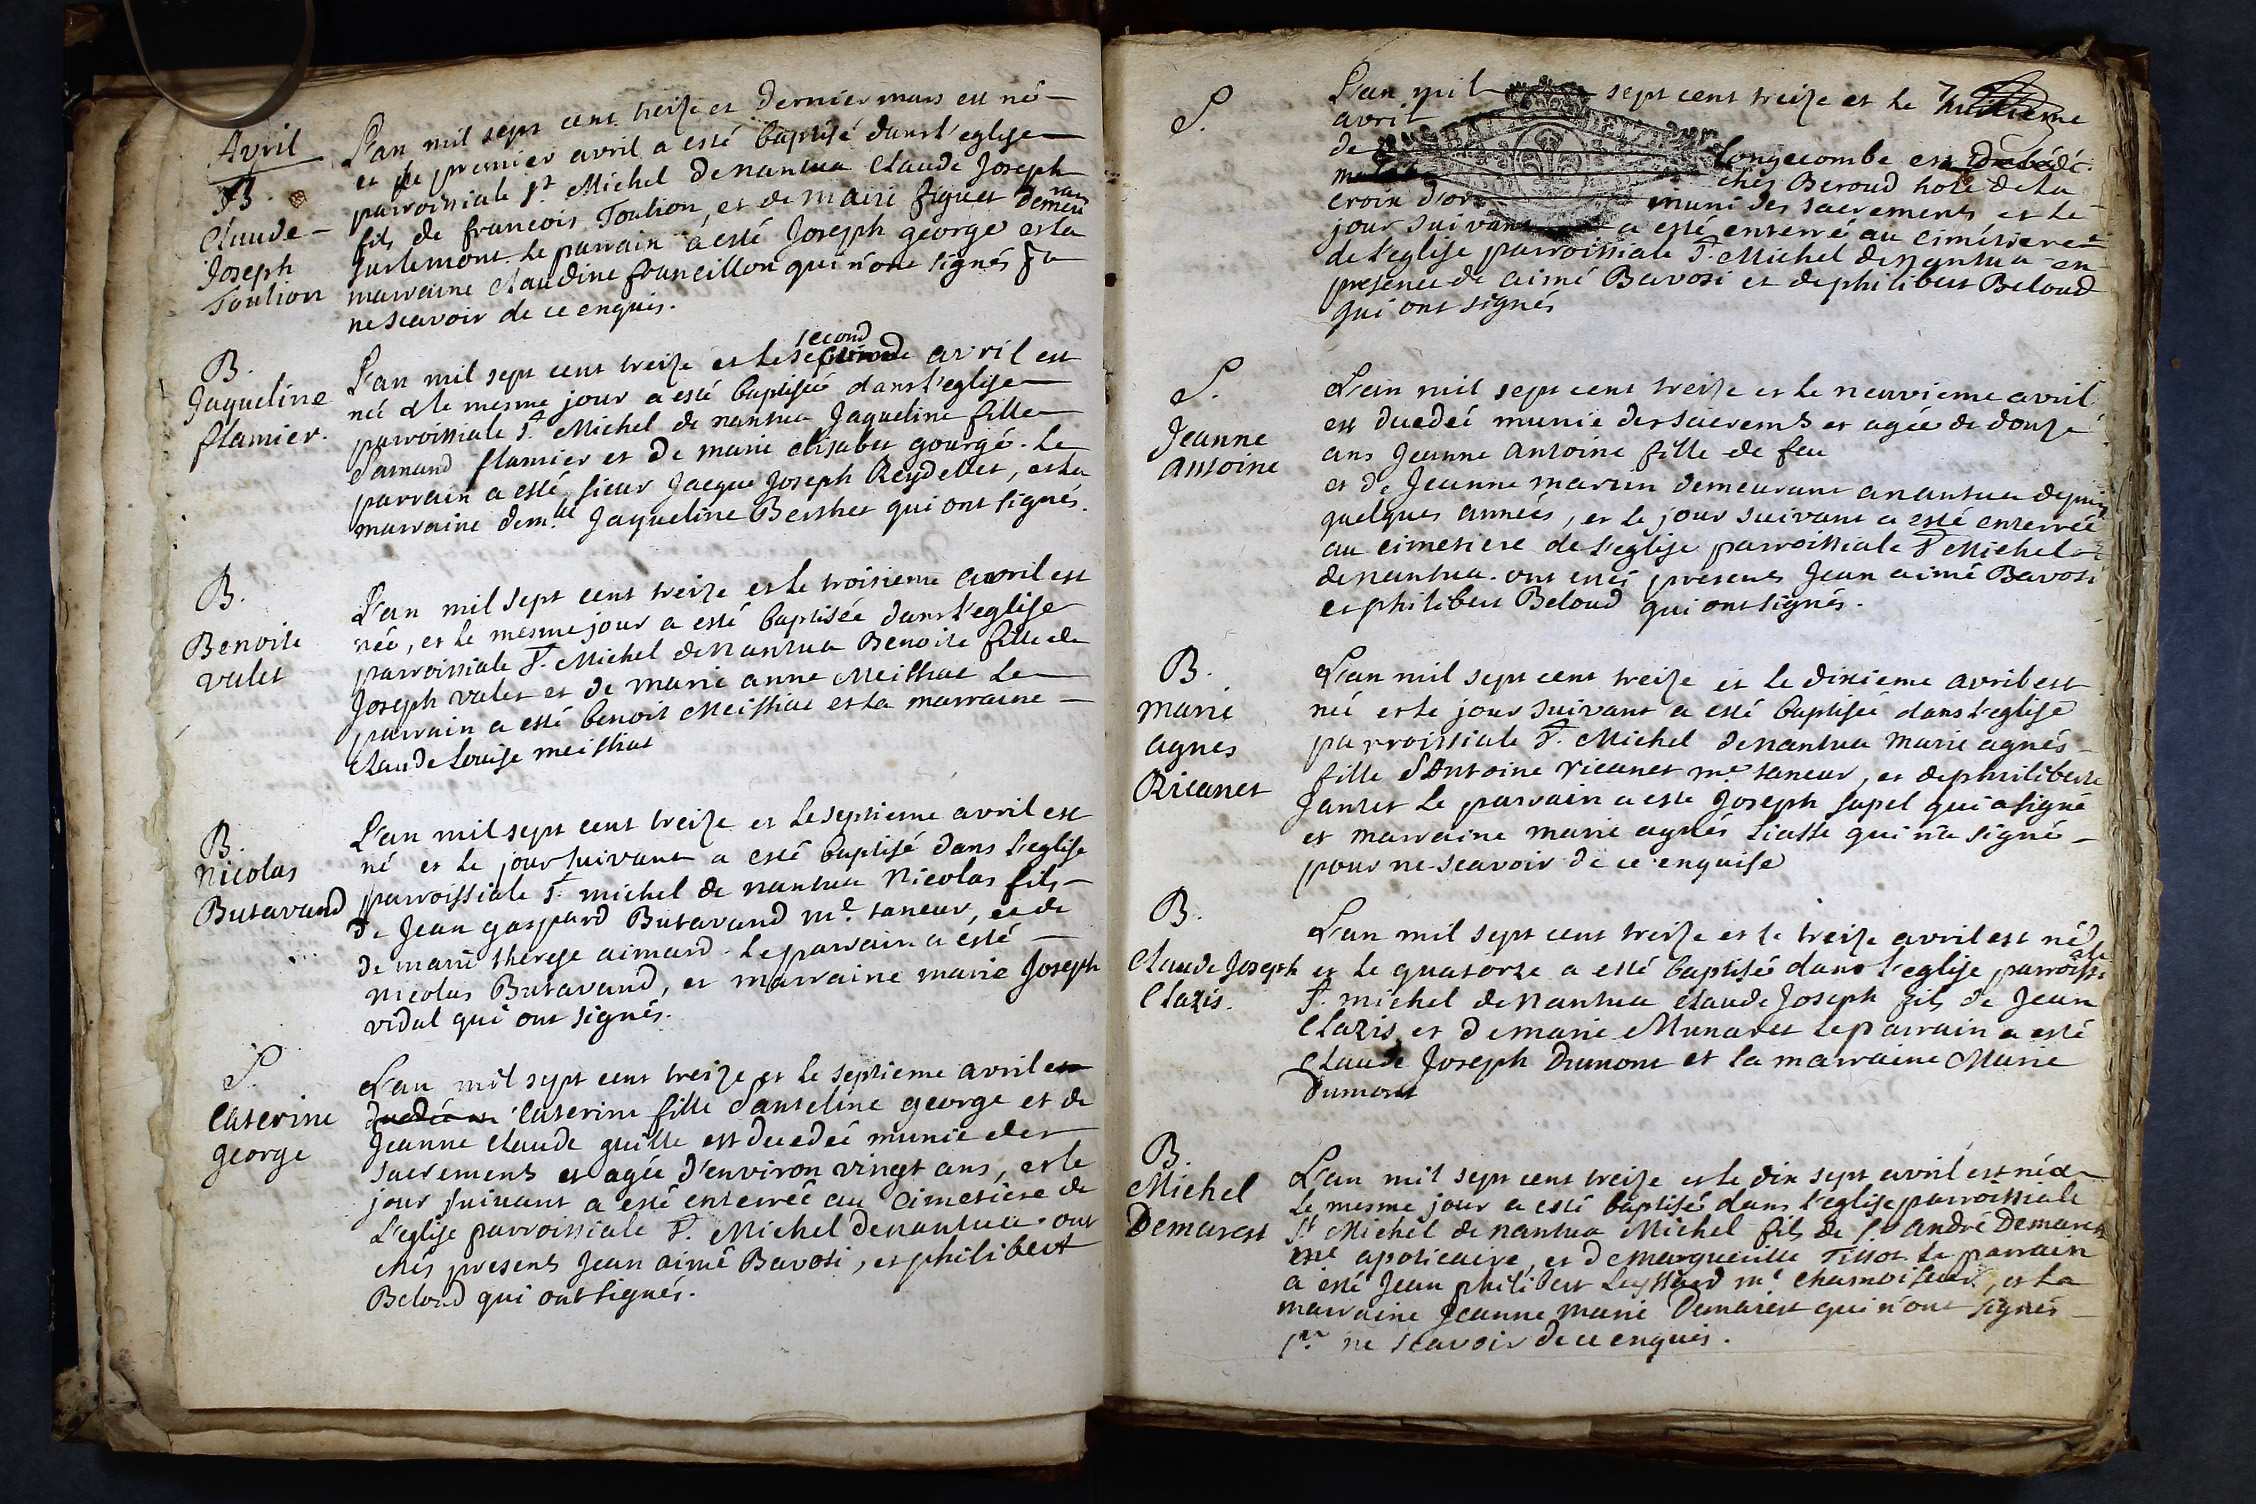 Avril
B.
Claude-
Joseph
Toulion
L'an mil sept cent treize et dernier mars est né
et le premier avril a esté baptisé dans l'eglise
parroissiale St Michel de nantua Claude Joseph
fils de francois Toulion, et de marie figuet demeurant
Jurlemont. Le parrain a esté Joseph george et la
marraine Claudine francillon qui n'ont signés
ne scavoir de ce enquis.
B.
Jaqueline
flamier.
L'an mil sept cent treize et le second avril est
née et le mesme jour a esté baptisée dans l'eglise
parroissiale St. Michel de nantua Jaqueline fille
d'amand flamier et de marie elisabet gourgé. Le
parrain a esté sieur Jacque Joseph Reydelet, et la
marraine dem.lle Jaqueline Berthet qui ont signés.
B.
Benoite
valet
L'an mil sept cent treize et le troisieme avril est
née, et le mesme jour a esté baptisée dans l'eglise
parroissiale St. Michel de nantua Benoite fille de
Joseph valet et de marie anne Meissiat Le
parrain a esté benoit Meissiat et la marraine
Claude Louise meissiat
B.
Nicolas
Butavand
L'an mil sept cent treize et le septieme avril est
né et le jour suivant a esté baptisé dans l'eglise
parroissiale St. michel de nantua Nicolas fils
de Jean gaspard Butavand me. taneur, et de
de marie therese aimard. Le parrain a esté
Nicolas Butavand, et marraine marie Joseph
vidal qui ont signés.
S.
Caterine
george
L'an mil sept cent treize et le septieme avril est
duedée et Caterine fille d'anteline george et de
Jeanne Claude guille est duedeé munie des
sacrements et agée d'environ vingt ans, et le
jour suivant a esté enterreé au Cimetiere de
L'eglise parroissiale St. Michel de nantua. ont
estés presents Jean aimé Bavosi, et philibert
Beloud qui ont signés.
S.
L'an mil sept cent treize et le 7 huitieme
avril
de Longecombe est
chés Beroud hote de la
croix d'or muni des sacrements et le
jour suivant a esté enterré au cimétiere
de l'eglise parroissiale St. Michel de nantua en
presence de aimé Bavosi et de philibert Beloud
qui ont signés
S.
Jeanne
antoine
L'an mil sept cent treize et le neuvieme avril
est duedeé munie des sacrem.ts et agée de douze
ans Jeanne antoine fille de feu
et de Jeanne martin demeurant a nantua depuis
quelques années, et le jour suivant a esté enterreé
au cimetiere de l'eglise parroissiale St Michel
de nantua. ont estés presents Jean aimé Bavosi
et philibert Beloud qui ont signés.
B.
marie
agnes
Ricanet
L'an mil sept cent treize et le dixieme avril est
née et le jour suivant a esté baptisée dans l'eglise
parroissiale St. Michel de nantua marie agnés
fille d'Antoine ricanet me. taneur, et de philiberte
Jantet Le parrain a esté Joseph supel qui a signé
et marraine marie agnés Liasse qui n'a signé
pour ne scavoir de ce enquise
B.
Claude Joseph
Clazis.
L'an mil sept cent treize et le treize avril est né
et Le quatorze a esté baptisé dans l'eglise parroissiale
St. michel de nantua Claude Joseph fils de Jean
Clazis, et de marie Munaret Le parrain a esté
Claude Joseph Dumont et la marraine Marie
Dumont
B.
Michel
Demarest
L'an mil sept cent treize et le dix sept avril est né et
Le mesme jour a esté baptisé dans l'eglise parroissiale
St Michel de nantua Michel fils de Sr andré Demarest
me apoticaire, et de marguerite Tissot Le parrain
a esté Jean philibert Leyssard me chamoiseur, et la
marraine Jeanne Marie Demarest qui n'ont signés
pr. ne scavoir de ce enquis.